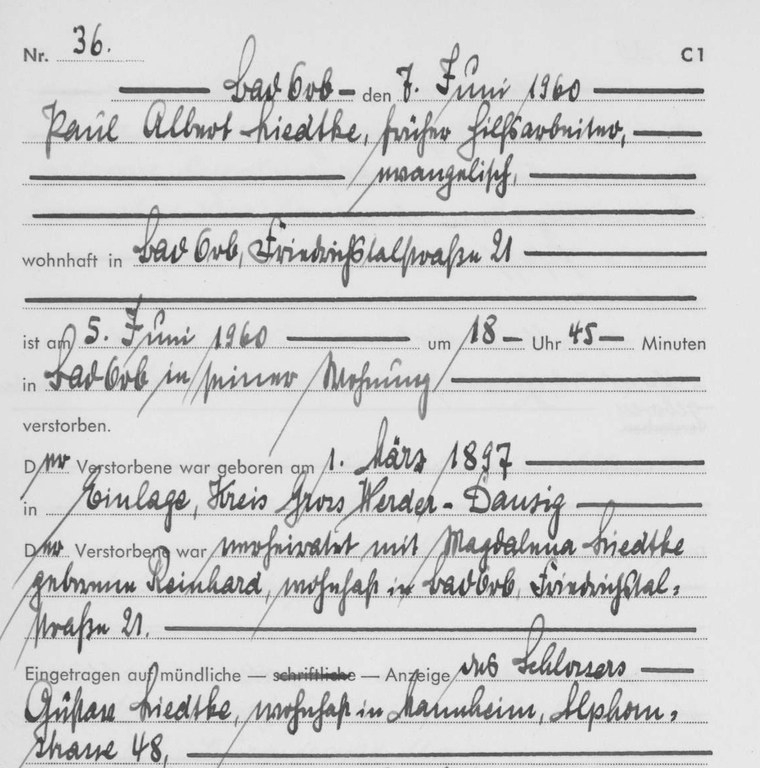 Nr. 36. C1
Bad Orb — den 7. Juni 1960
Paul Albert Liedtke, früher Hilfsarbeiter,
evangelisch,
wohnhaft in Bad Orb, Friedrichstalstraße 21
ist am 5. Juni 1960 um 18 — Uhr 45 — Minuten
in Bad Orb in seiner Wohnung
verstorben.
Der Verstorbene war geboren am 1. März 1897
in Einlage, Kreis Gross Werder - Danzig
Der Verstorbene war verheiratet mit Magdalena Liedtke
geborene Reinhard, wohnhaft in Bad Orb, Friedrichstal-
straße 21.
Eingetragen auf mündliche — schriftliche — Anzeige des Schlossers
Gustav Liedtke, wohnhaft in Mannheim, Alphorn-
strasse 48,